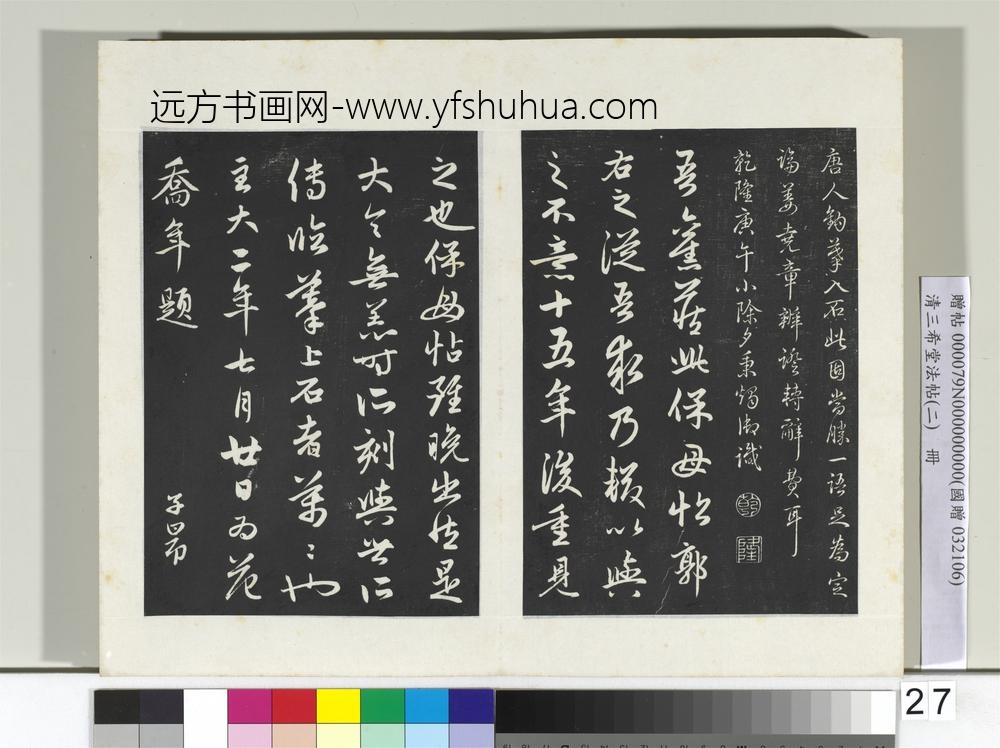 远方书画网-www.yfshuhua.com
唐人鉤摹入石此固當勝一語足為定
論姜堯章辨證轉辭費耳
乾隆庚午小除夕秉燭御識
乾
隆
吾舊藏此保母帖郭
右之從吾求乃輟以與
之不意十五年後重見
之也保母帖雖晚出然是
大令無恙時所刻與世所
傳臨摹上石者萬〻也
至大二年七月廿日為范
喬年題
子昂
贈帖 000079N000000000(國贈 032106)
清三希堂法帖(二) 冊
27